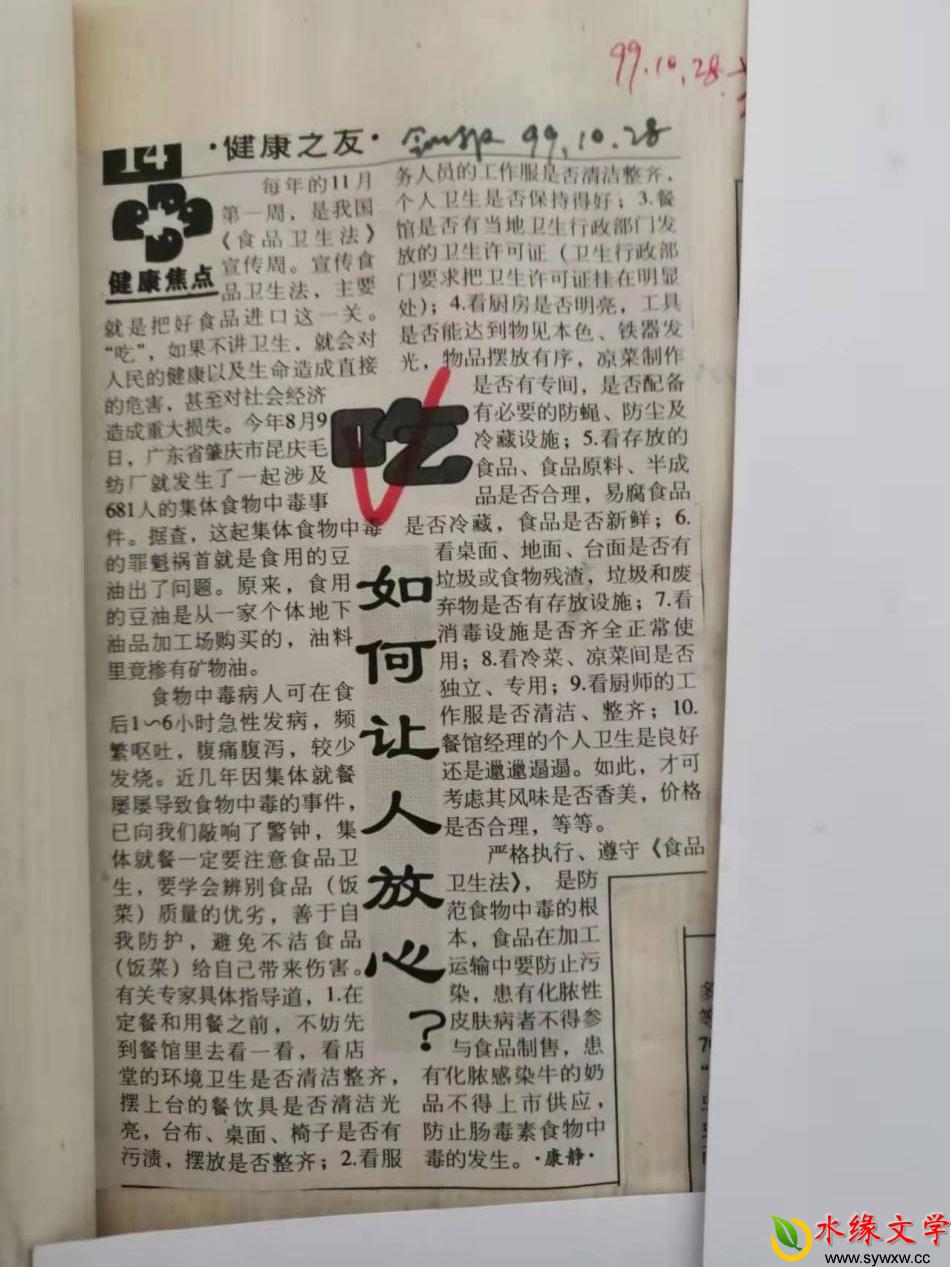 99.10.28
14
·健康之友·
99.10.28
健康焦点
每年的11月
第一周，是我国
《食品卫生法》
宣传周。宣传食
品卫生法，主要
就是把好食品进口这一关。
“吃”，如果不讲卫生，就会对
人民的健康以及生命造成直接
的危害，甚至对社会经济
造成重大损失。今年8月9
日，广东省肇庆市昆庆毛
纺厂就发生了一起涉及
681人的集体食物中毒事
件。据查，这起集体食物中毒
的罪魁祸首就是食用的豆
油出了问题。原来，食用
的豆油是从一家个体地下
油品加工场购买的，油料
里竟掺有矿物油。
食物中毒病人可在食
后1～6小时急性发病，频
繁呕吐，腹痛腹泻，较少
发烧。近几年因集体就餐
屡屡导致食物中毒的事件，
已向我们敲响了警钟，集
体就餐一定要注意食品卫
生，要学会辨别食品（饭
菜）质量的优劣，善于自
我防护，避免不洁食品
（饭菜）给自己带来伤害。
有关专家具体指导道，1.在
定餐和用餐之前，不妨先
到餐馆里去看一看，看店
堂的环境卫生是否清洁整齐，
摆上台的餐饮具是否清洁光
亮，台布、桌面、椅子是否有
污渍，摆放是否整齐；2.看服
吃
如何让人放心？
务人员的工作服是否清洁整齐，
个人卫生是否保持得好；3.餐
馆是否有当地卫生行政部门发
放的卫生许可证（卫生行政部
门要求把卫生许可证挂在明显
处）；4.看厨房是否明亮，工具
是否能达到物见本色、铁器发
光，物品摆放有序，凉菜制作
是否有专间，是否配备
有必要的防蝇、防尘及
冷藏设施；5.看存放的
食品、食品原料、半成
品是否合理，易腐食品
是否冷藏，食品是否新鲜；6.
看桌面、地面、台面是否有
垃圾或食物残渣，垃圾和废
弃物是否有存放设施；7.看
消毒设施是否齐全正常使
用；8.看冷菜、凉菜间是否
独立、专用；9.看厨师的工
作服是否清洁、整齐；10.
餐馆经理的个人卫生是良好
还是邋邋遢遢。如此，才可
考虑其风味是否香美，价格
是否合理，等等。
严格执行、遵守《食品
卫生法》，是防
范食物中毒的根
本，食品在加工
运输中要防止污
染，患有化脓性
皮肤病者不得参
与食品制售，患
有化脓感染牛的奶
品不得上市供应，
防止肠毒素食物中
毒的发生。·康静·
水缘文学
www.sywxw.cc